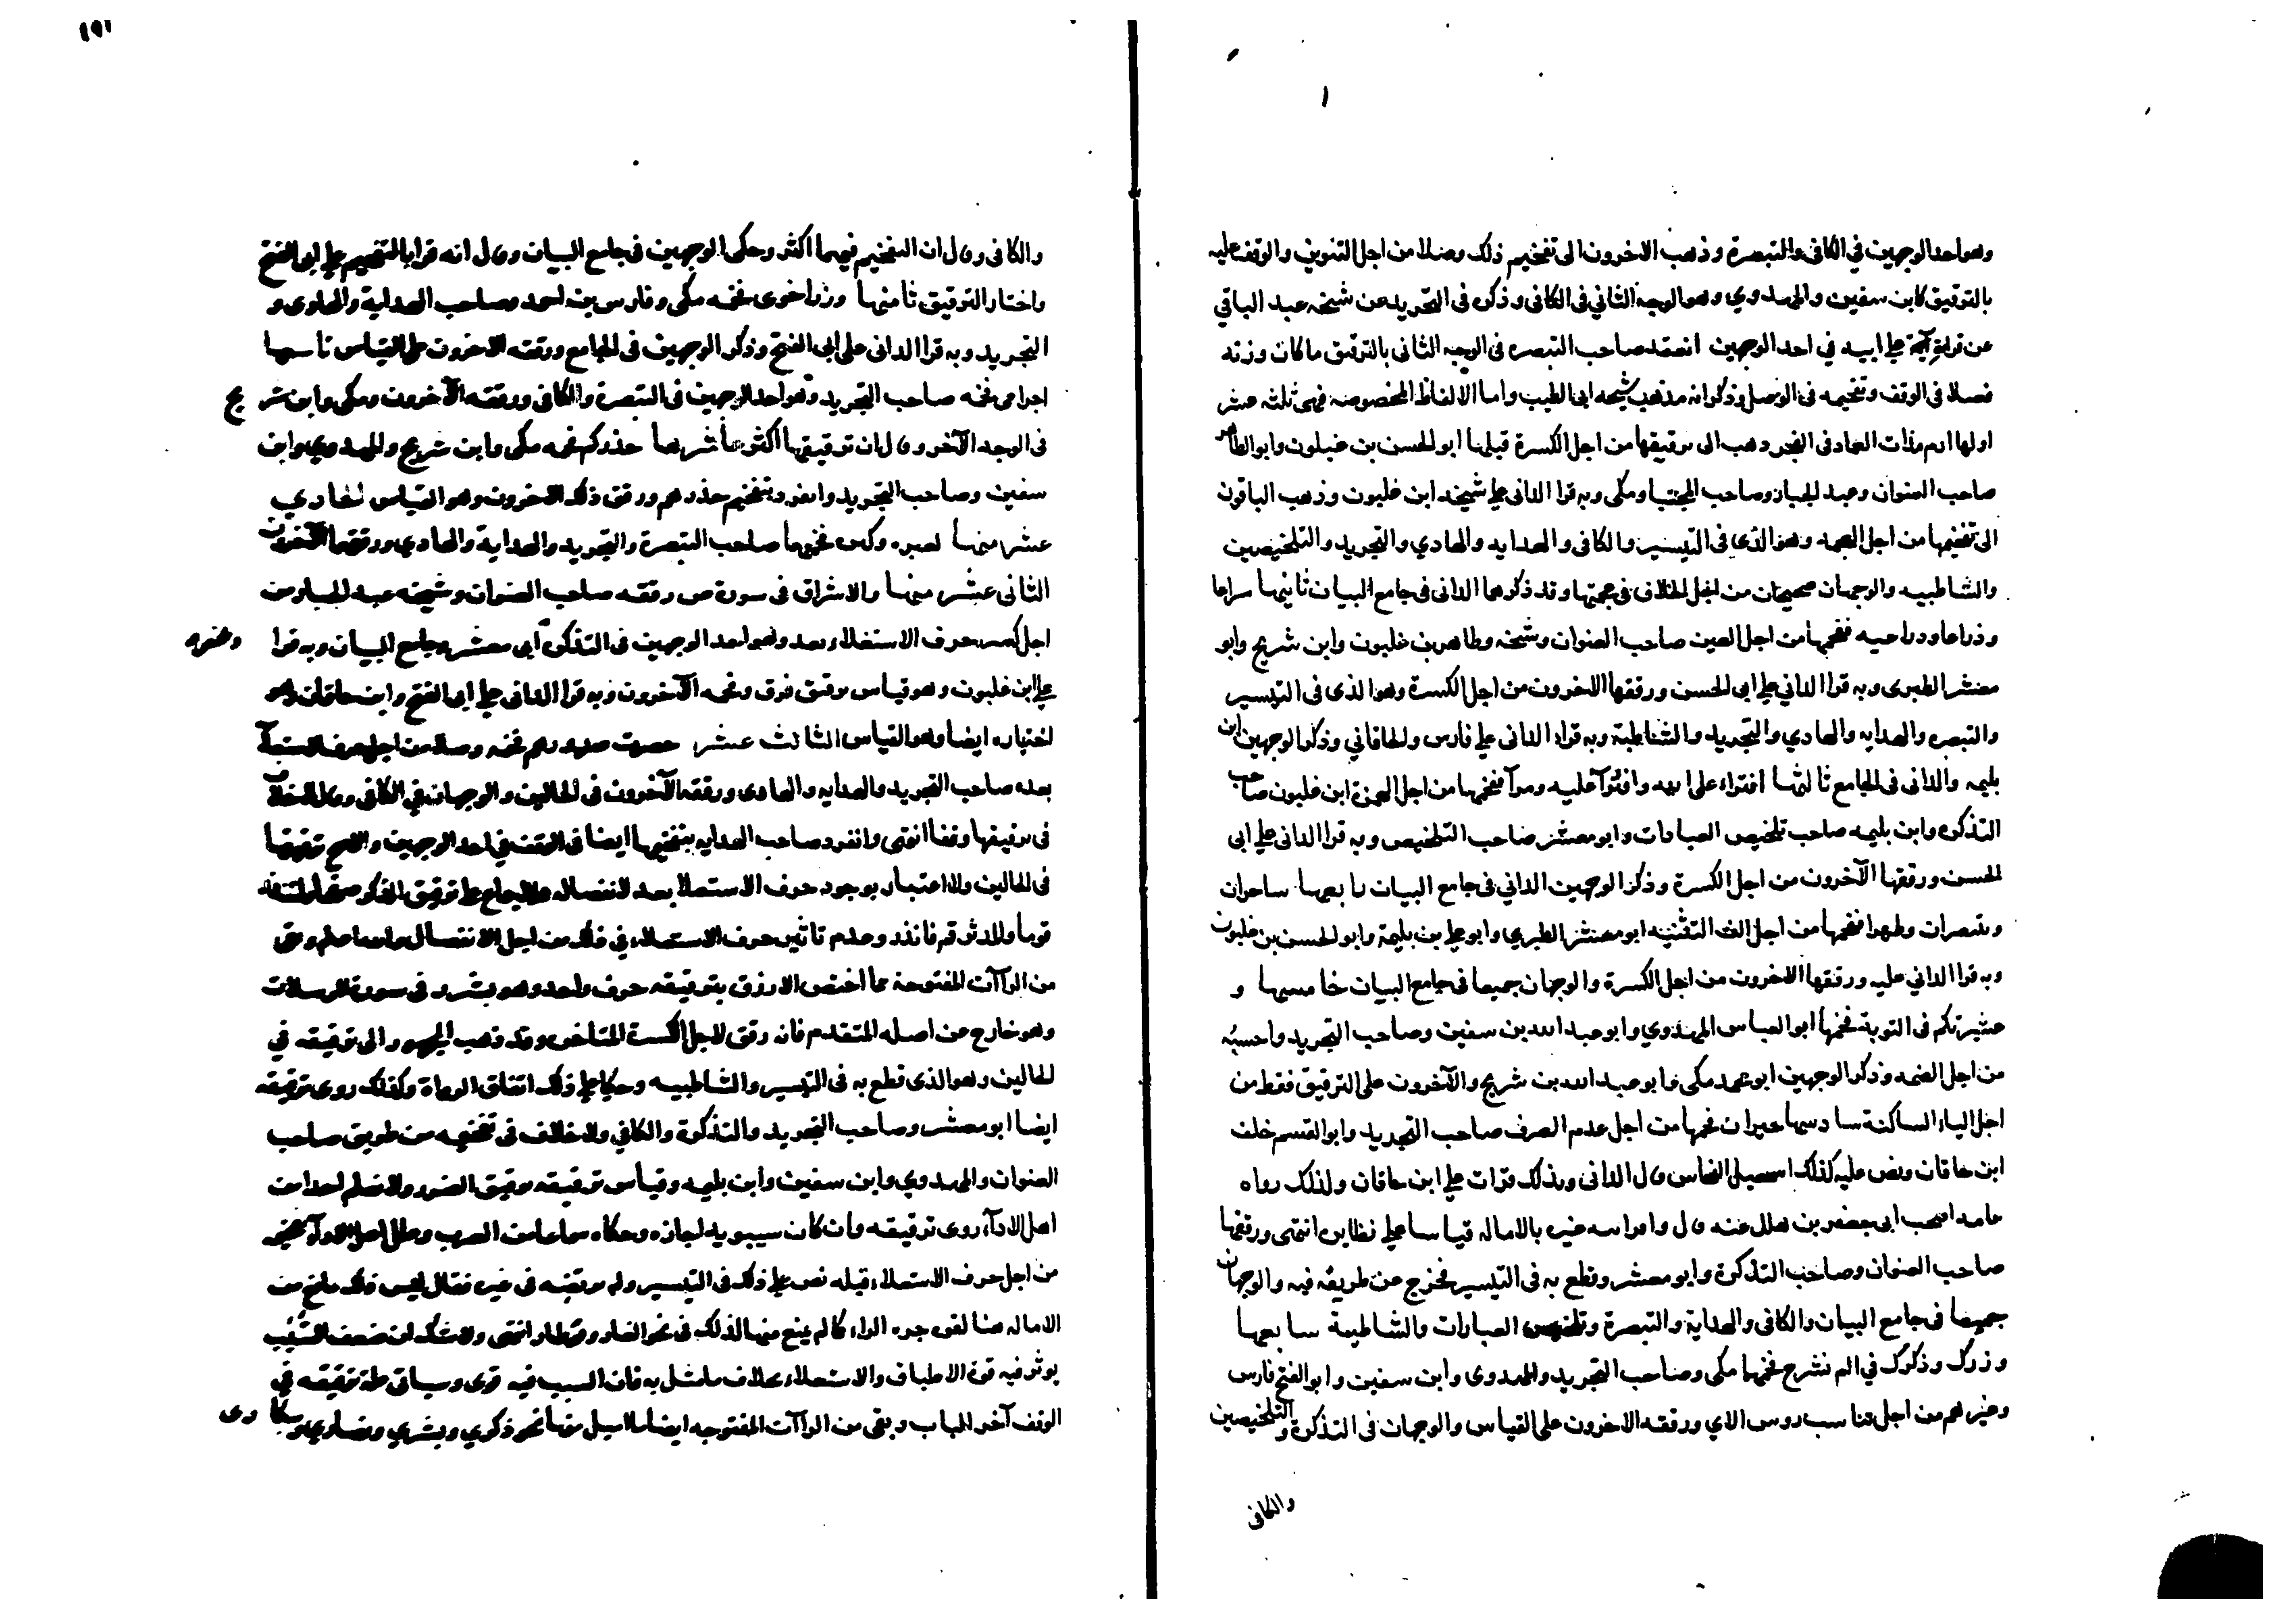 وهو احد الوجهين في الكافي والتبصرة وذهب الاخرون الى تفخيم ذلك وصلا من اجل التنوين والوقف عليه
بالترقيق كابن سفين والمهدوي وهو الوجه الثاني في الكافي وذكره في التجريد عن شيخه عبد الباقي
عن قراءته على ابيه في احد الوجهين انفرد صاحب التبصره في الوجه الثاني بالترقيق ما كان وزنه
فعلا في الوقف وتفخيمه في الوصل وذكر انه مذهب شيخه ابي الطيب واما الالفاظ المخصوصه فهي ثلثه عشر
اولها ارم ذات العماد في الفجر دهب الى ترقيقها من اجل الكسرة قبلها ابو الحسن بن غبلون وابو الطاهر
صاحب العنوان وعبد الجبار وصاحب المجتبا ومكي وبه قرا الداني على شيخه ابن غلبون وذهب الباقون
الى تفخيمها من اجل العجمه وهو الذي في التيسير والكافي والهدايه والهادي والتجريد والتلخيصين
والشاطبيه والوجهان صحيحان من اجل الخلاف في عجمتها وقد ذكرهما الداني في جامع البيان ثانيها سراعا
وذراعا ودراعيه ففخمها من اجل العين صاحب العنوان وشيخه وطاهر بن غلبون وابن شريح وابو
معشر الطبري وبه قرا الداني على ابي الحسن ورققها الاخرون من اجل الكسرة وهو الذي في التيسير
والتبصره والهدايه والهادي والتجريد والشاطبية وبه قراء الداني على فارس والخاقاني وذكر الوجهين ابن
بليمه والداني في الجامع ثالثها افتراء على الله وافترآ عليه ومرآ ففخمها من اجل الهمزة ابن غلبون صاحب
التذكره وابن بليمه صاحب تلخيص العبادات وابو معشر صاحب التلخيص وبه قرا الداني على ابي
الحسن ورققها الآخرون من اجل الكسرة وذكر الوجهين الداني في جامع البيان رابعها ساحران
وتنتصران وطهرا ففخمها من اجل الف التثنيه ابو معشر الطبري وابو علي بن بليمة وابو الحسن بن غلبون
وبه قرا الداني عليه ورققها الاخرون من اجل الكسرة والوجهان جميعا في جامع البيان خامسها و
عشيرتكم في التوبة فخمها ابو العباس المهدوي وابو عبد الله بن سفين وصاحب التجريد واحسبه
من اجل الضمه وذكر الوجهين ابو محمد مكي وابو عبد الله بن شريح والآخرون على الترقيق فقط من
اجل الياء الساكنة سادسها حيران فخمها من اجل عدم الصرف صاحب التجريد وابو القسم خلف
ابن خاقان ونص عليه كذلك اسمعيل النحاس قال الداني وبذلك قرات على ابن خاقان ولذلك رواه
عامه اصحب ابي جعفر بن هلال عنه قال واقراسه غيره بالاماله قياسا على نظايره انتهى ورققها
صاحب العنوان وصاحب التذكرة وابو معشر وقطع به في التيسير فخرج عن طريقه فيه والوجهان
جميعا في جامع البيان والكافي والهداية والتبصرة وتلخيص العبارات والشاطبية سابعها
وزرك وذكرك في الم نشرح فخمها مكي وصاحب التجريد والمهدوي وابن سفين وابو الفتح فارس
وغيرهم من اجل تناسب روس الاي ورققه الاخرون على القياس والوجهان في التذكرة والتلخيصين
والكافي
والكافي وقال ان التفخيم فيهما اكثر وحكى الوجهين في جامع البيان وقال انه قرا بالتفخيم على ابي الفتح
واختار الترقيق ثامنها وزر اخرى فخمه مكي وفارس بن احمد وصاحب الهداية والهادي و
التجريد وبه قرا الداني على ابي الفتح وذكر الوجهين في الجامع ورققه الاخرون على القياس تاسعها
اجرامي فخمه صاحب التجريد وهو احد الوجهين في التبصرة والكافي ورققه الآخرون ومكي وابن شريح
في الوجه الآخر وقال ان ترقيقها اكثر عاشرها حذركم فخمه مكي وابن شريح والمهدوي وابن
سفين وصاحب التجريد وانفرد بتفخيم حذرهم ورقق ذلك الاخرون وهو القياس الحادي
عشر منها لعبره وكبره فخمها صاحب التبصرة والتجريد والهداية والهادي ورققها الآخرون
الثاني عشر منها والاشراق في سورة ص رققه صاحب العنوان وشيخه عبد الجبار من
اجل كسر حرف الاستعلاء بعد وهو احد الوجهين في التذكرة وابي معشر وجامع البيان وبه قرا
على ابن غلبون وهو قياس ترقيق فرق وفخمه الآخرون وبه قرا الداني على ابي الفتح وابن خاقان وهو
اختياره ايضا وهو القياس الثالث عشر حصرت صدورهم فخمه وصلا من اجل حرف الاستعلآ
بعده صاحب التجريد والهدايه والهادي ورققه الآخرون في الحالين والوجهان في الكافي وقال لا خلاف
في ترقيقها وقفا انتهى وانفرد صاحب الهدايه بتفخيمها ايضا في الوقف في احد الوجهين والاصح ترقيقها
في الحالين ولا اعتبار بوجود حرف الاستعلا بعد لانفصاله وللاجماع على ترقيق الذكر صفحا ولتنذر
قوما والمدثر قم فانذر وعدم تاثير حرف الاستعلاء في ذلك من اجل الانفصال والله اعلم وبقي
من الرآات المفتوحة مما اختص الازرق بترقيقه حرف واحد وهو بشرر في سورة المرسلات
وهو خارج عن اصله المتقدم فانه رقق لاجل الكسرة المتاخره وقد ذهب الجمهور الى ترقيقه في
الحالين وهو الذي قطع به في التيسير والشاطبيه وحكيا على ذلك اتفاق الرواة وكذلك روى ترقيقه
ايضا ابو معشر وصاحب التجريد والتذكرة والكافي ولا خلاف في تفخيمه من طريق صاحب
العنوان والمهدوي وابن سفين وابن بليمه وقياس ترقيقه ترقيق الضرر ولا نعلم احدا من
اهل الادآء روى ترقيقه وان كان سيبويه اجازه وحكاه سماعا من العرب وعلل اهل الادآء تفخيمه
من اجل حرف الاستعلاء قبله نص على ذلك في التيسير ولم يرتضه في غيره فقال ليس ذلك مانع من
الاماله هنا لقوه جره الراء كما لم يمنع منها لذلك في نحو الغار وقنطار انتهى ولا شك ان ضعف السبب
يوثر فيه قوة الاطباق والاستعلاء بخلاف ما مثل به فان السبب فيه قوى وسياتي علة ترقيقه في
الوقف آخر الباب وبقى من الراآت المفتوحه ايضا ما اميل منها نحو ذكري وبشري ونصاري وسكارى